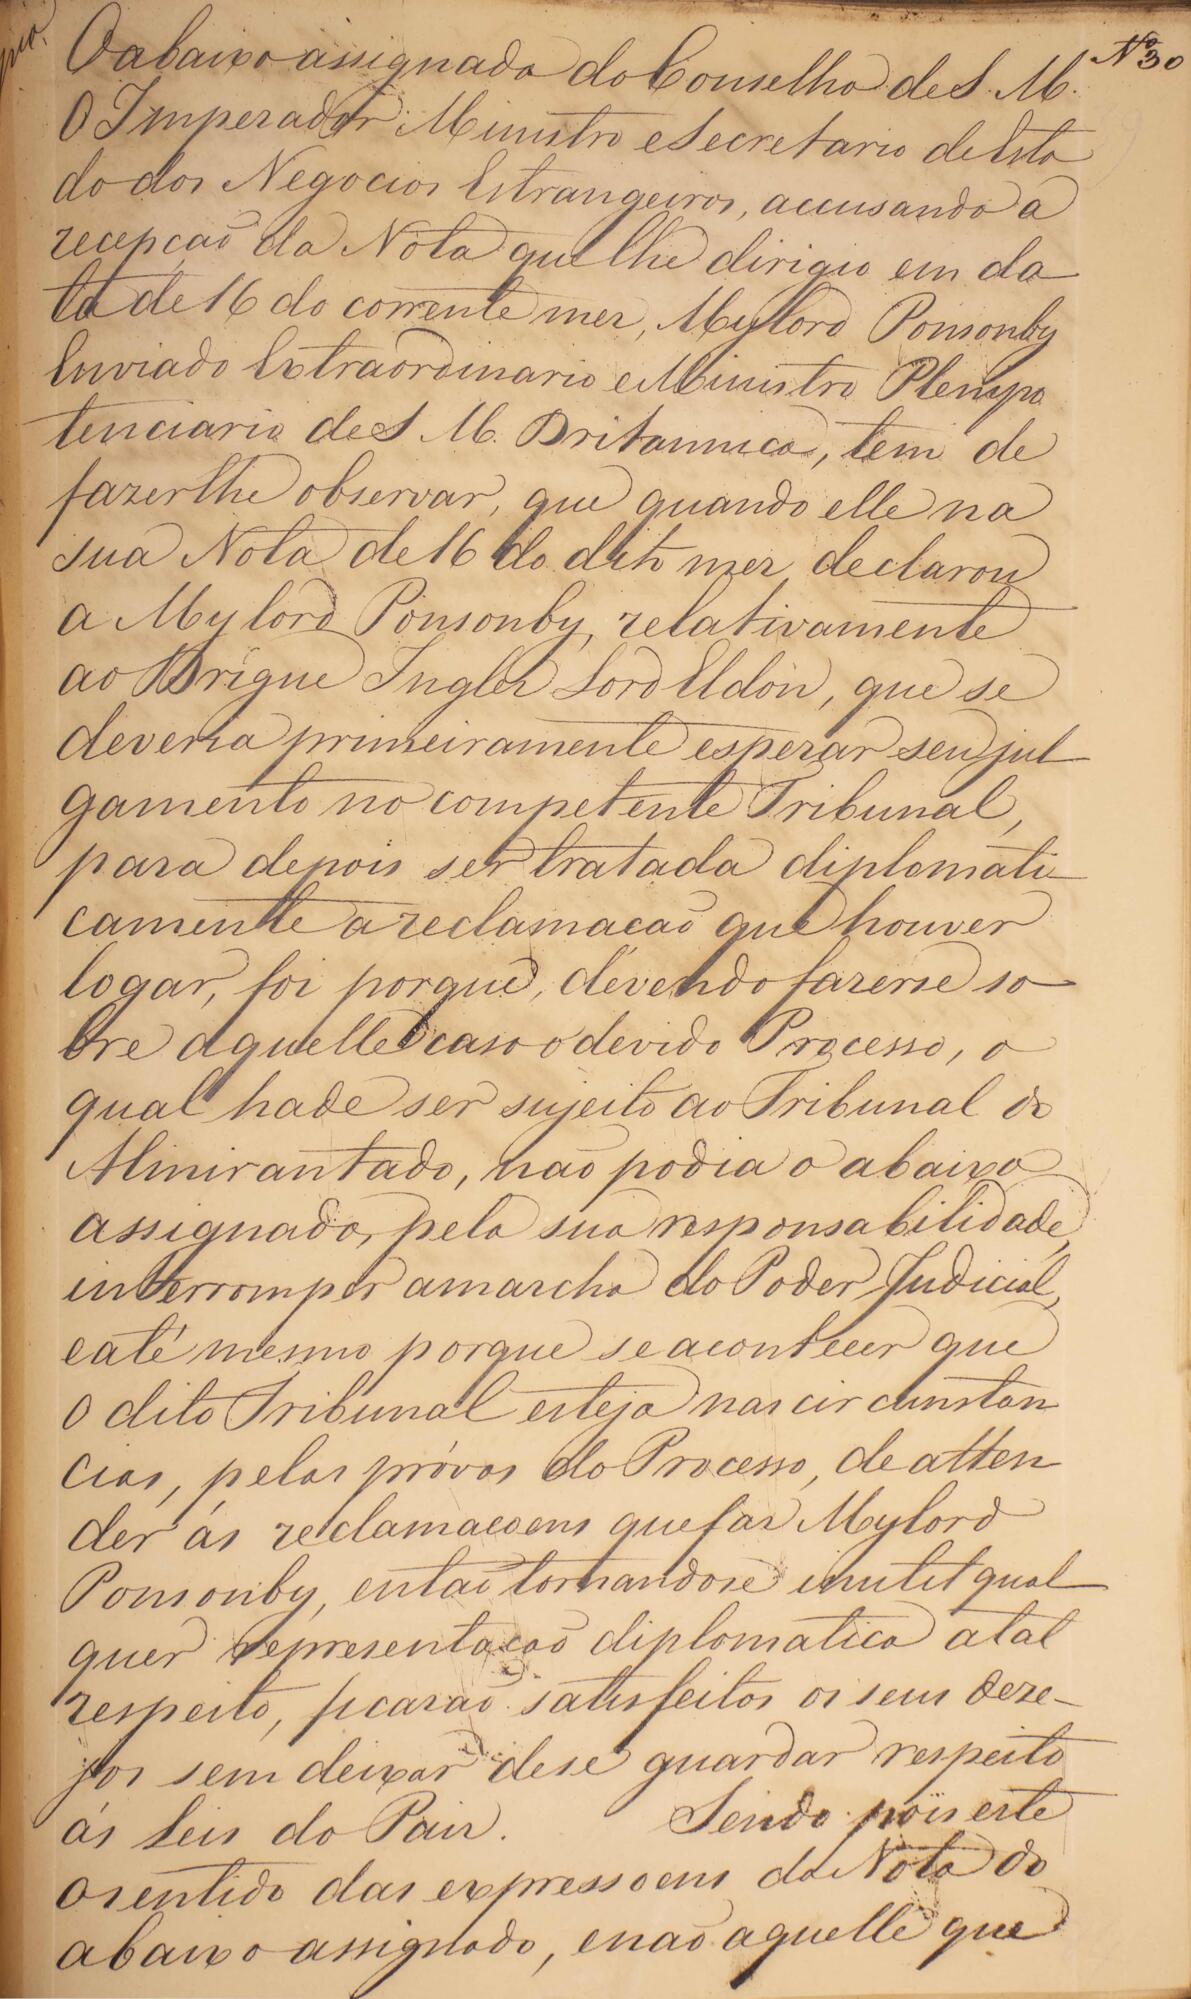 Nº 30
O abaixo assignado do Conselho de S. M.
O Imperador Ministro e Secretario de Esta
do dos Negocios Estrangeiros, accusando a
recepção da Nota que lhe dirigio em da
ta de 16 do corrente mez, Mylord Ponsonby
Enviado Extraordinario e Ministro Plenipo
tenciario de S. M. Britannica, tem de
fazerlhe observar, que quando elle na
sua Nota de 16 do dito mez declarou
a Mylord Ponsonby, relativamente
ao Brigue Inglez Lord Eldon, que se
deveria primeiramente esperar seu jul
gamento no competente Tribunal,
para depois ser tratada diplomati
camente a reclamacaõ que houver
logar, foi porque, devendo fazerse so
bre aquelle caso o devido Processo, o
qual hade ser sujeito ao Tribunal do
Almirantado, naõ podia o abaixo
assignado, pela sua responsabilidade,
interromper a marcha do Poder Judicial,
e até mesmo porque se acontecer que
o dito Tribunal esteja nas circunstan
cias, pelas próvas do Processo, de atten
der ás reclamacoens que faz Mylord
Ponsonby, entaõ tornandose inutil qual
quer representacaõ diplomatica a tal
respeito, ficaraõ satisfeitos os seus deze-
jos sem deixar dese guardar respeito
ás Leis do Paiz. Sendo pois este
o sentido das expressoens da Nota do
abaixo assignado, e naõ aquelle que